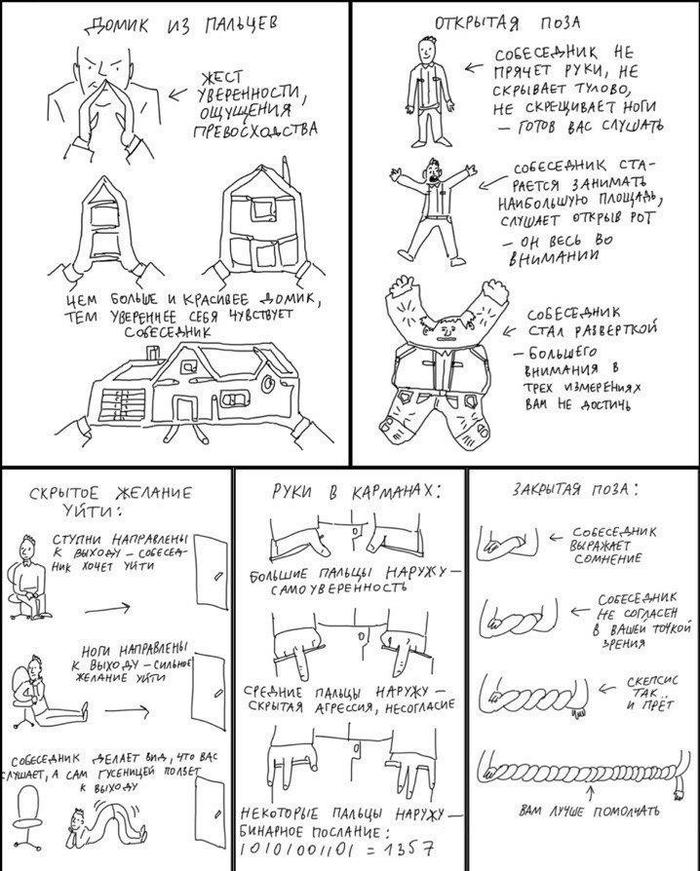 ДОМИК ИЗ ПАЛЬЦЕВ
ЖЕСТ
УВЕРЕННОСТИ,
ОЩУЩЕНИЯ
ПРЕВОСХОДСТВА
ЧЕМ БОЛЬШЕ И КРАСИВЕЕ ДОМИК,
ТЕМ УВЕРЕННЕЕ СЕБЯ ЧУВСТВУЕТ
СОБЕСЕДНИК
ОТКРЫТАЯ ПОЗА
СОБЕСЕДНИК НЕ
ПРЯЧЕТ РУКИ, НЕ
СКРЫВАЕТ ТУЛОВО,
НЕ СКРЕЩИВАЕТ НОГИ
– ГОТОВ ВАС СЛУШАТЬ
СОБЕСЕДНИК СТА-
РАЕТСЯ ЗАНИМАТЬ
НАИБОЛЬШУЮ ПЛОЩАДЬ,
СЛУШАЕТ ОТКРЫВ РОТ
– ОН ВЕСЬ ВО
ВНИМАНИИ
СОБЕСЕДНИК
СТАЛ РАЗВЕРТКОЙ
– БОЛЬШЕГО
ВНИМАНИЯ В
ТРЕХ ИЗМЕРЕНИЯХ
ВАМ НЕ ДОСТИЧЬ
СКРЫТОЕ ЖЕЛАНИЕ
УЙТИ:
СТУПНИ НАПРАВЛЕНЫ
К ВЫХОДУ – СОБЕСЕД-
НИК ХОЧЕТ УЙТИ
НОГИ НАПРАВЛЕНЫ
К ВЫХОДУ – СИЛЬНОЕ
ЖЕЛАНИЕ УЙТИ
СОБЕСЕДНИК ДЕЛАЕТ ВИД, ЧТО ВАС
СЛУШАЕТ, А САМ ГУСЕНИЦЕЙ ПОЛЗЕТ
К ВЫХОДУ
РУКИ В КАРМАНАХ:
БОЛЬШИЕ ПАЛЬЦЫ НАРУЖУ –
САМОУВЕРЕННОСТЬ
СРЕДНИЕ ПАЛЬЦЫ НАРУЖУ –
СКРЫТАЯ АГРЕССИЯ, НЕСОГЛАСИЕ
НЕКОТОРЫЕ ПАЛЬЦЫ НАРУЖУ –
БИНАРНОЕ ПОСЛАНИЕ:
10101001101 = 1357
ЗАКРЫТАЯ ПОЗА:
СОБЕСЕДНИК
ВЫРАЖАЕТ
СОМНЕНИЕ
СОБЕСЕДНИК
НЕ СОГЛАСЕН
В ВАШЕЙ ТОЧКОЙ
ЗРЕНИЯ
СКЕПСИС
ТАК
И ПРЁТ
ВАМ ЛУЧШЕ ПОМОЛЧАТЬ